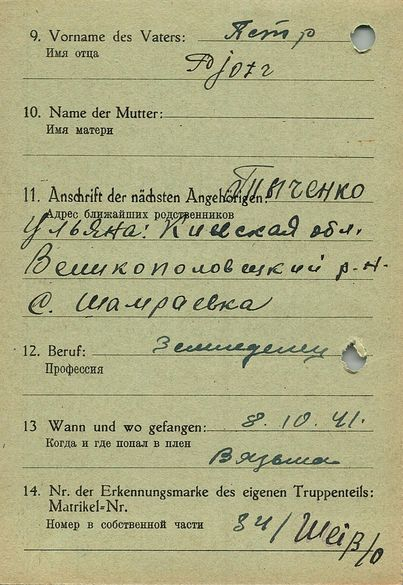 9. Vorname des Vaters: Петр
Имя отца
Pjotr
10. Name der Mutter:
Имя матери
11. Anschrift der nächsten Angehörigen: Тимченко
Адрес ближайших родственников
Ульяна: Киевская обл.
Великополовецкий р-н.
с. Шамраевка
12. Beruf: Земледелец
Профессия
13 Wann und wo gefangen: 8.10.41.
Когда и где попал в плен
Вязьма
14. Nr. der Erkennungsmarke des eigenen Truppenteils:
Matrikel-Nr.
Номер в собственной части